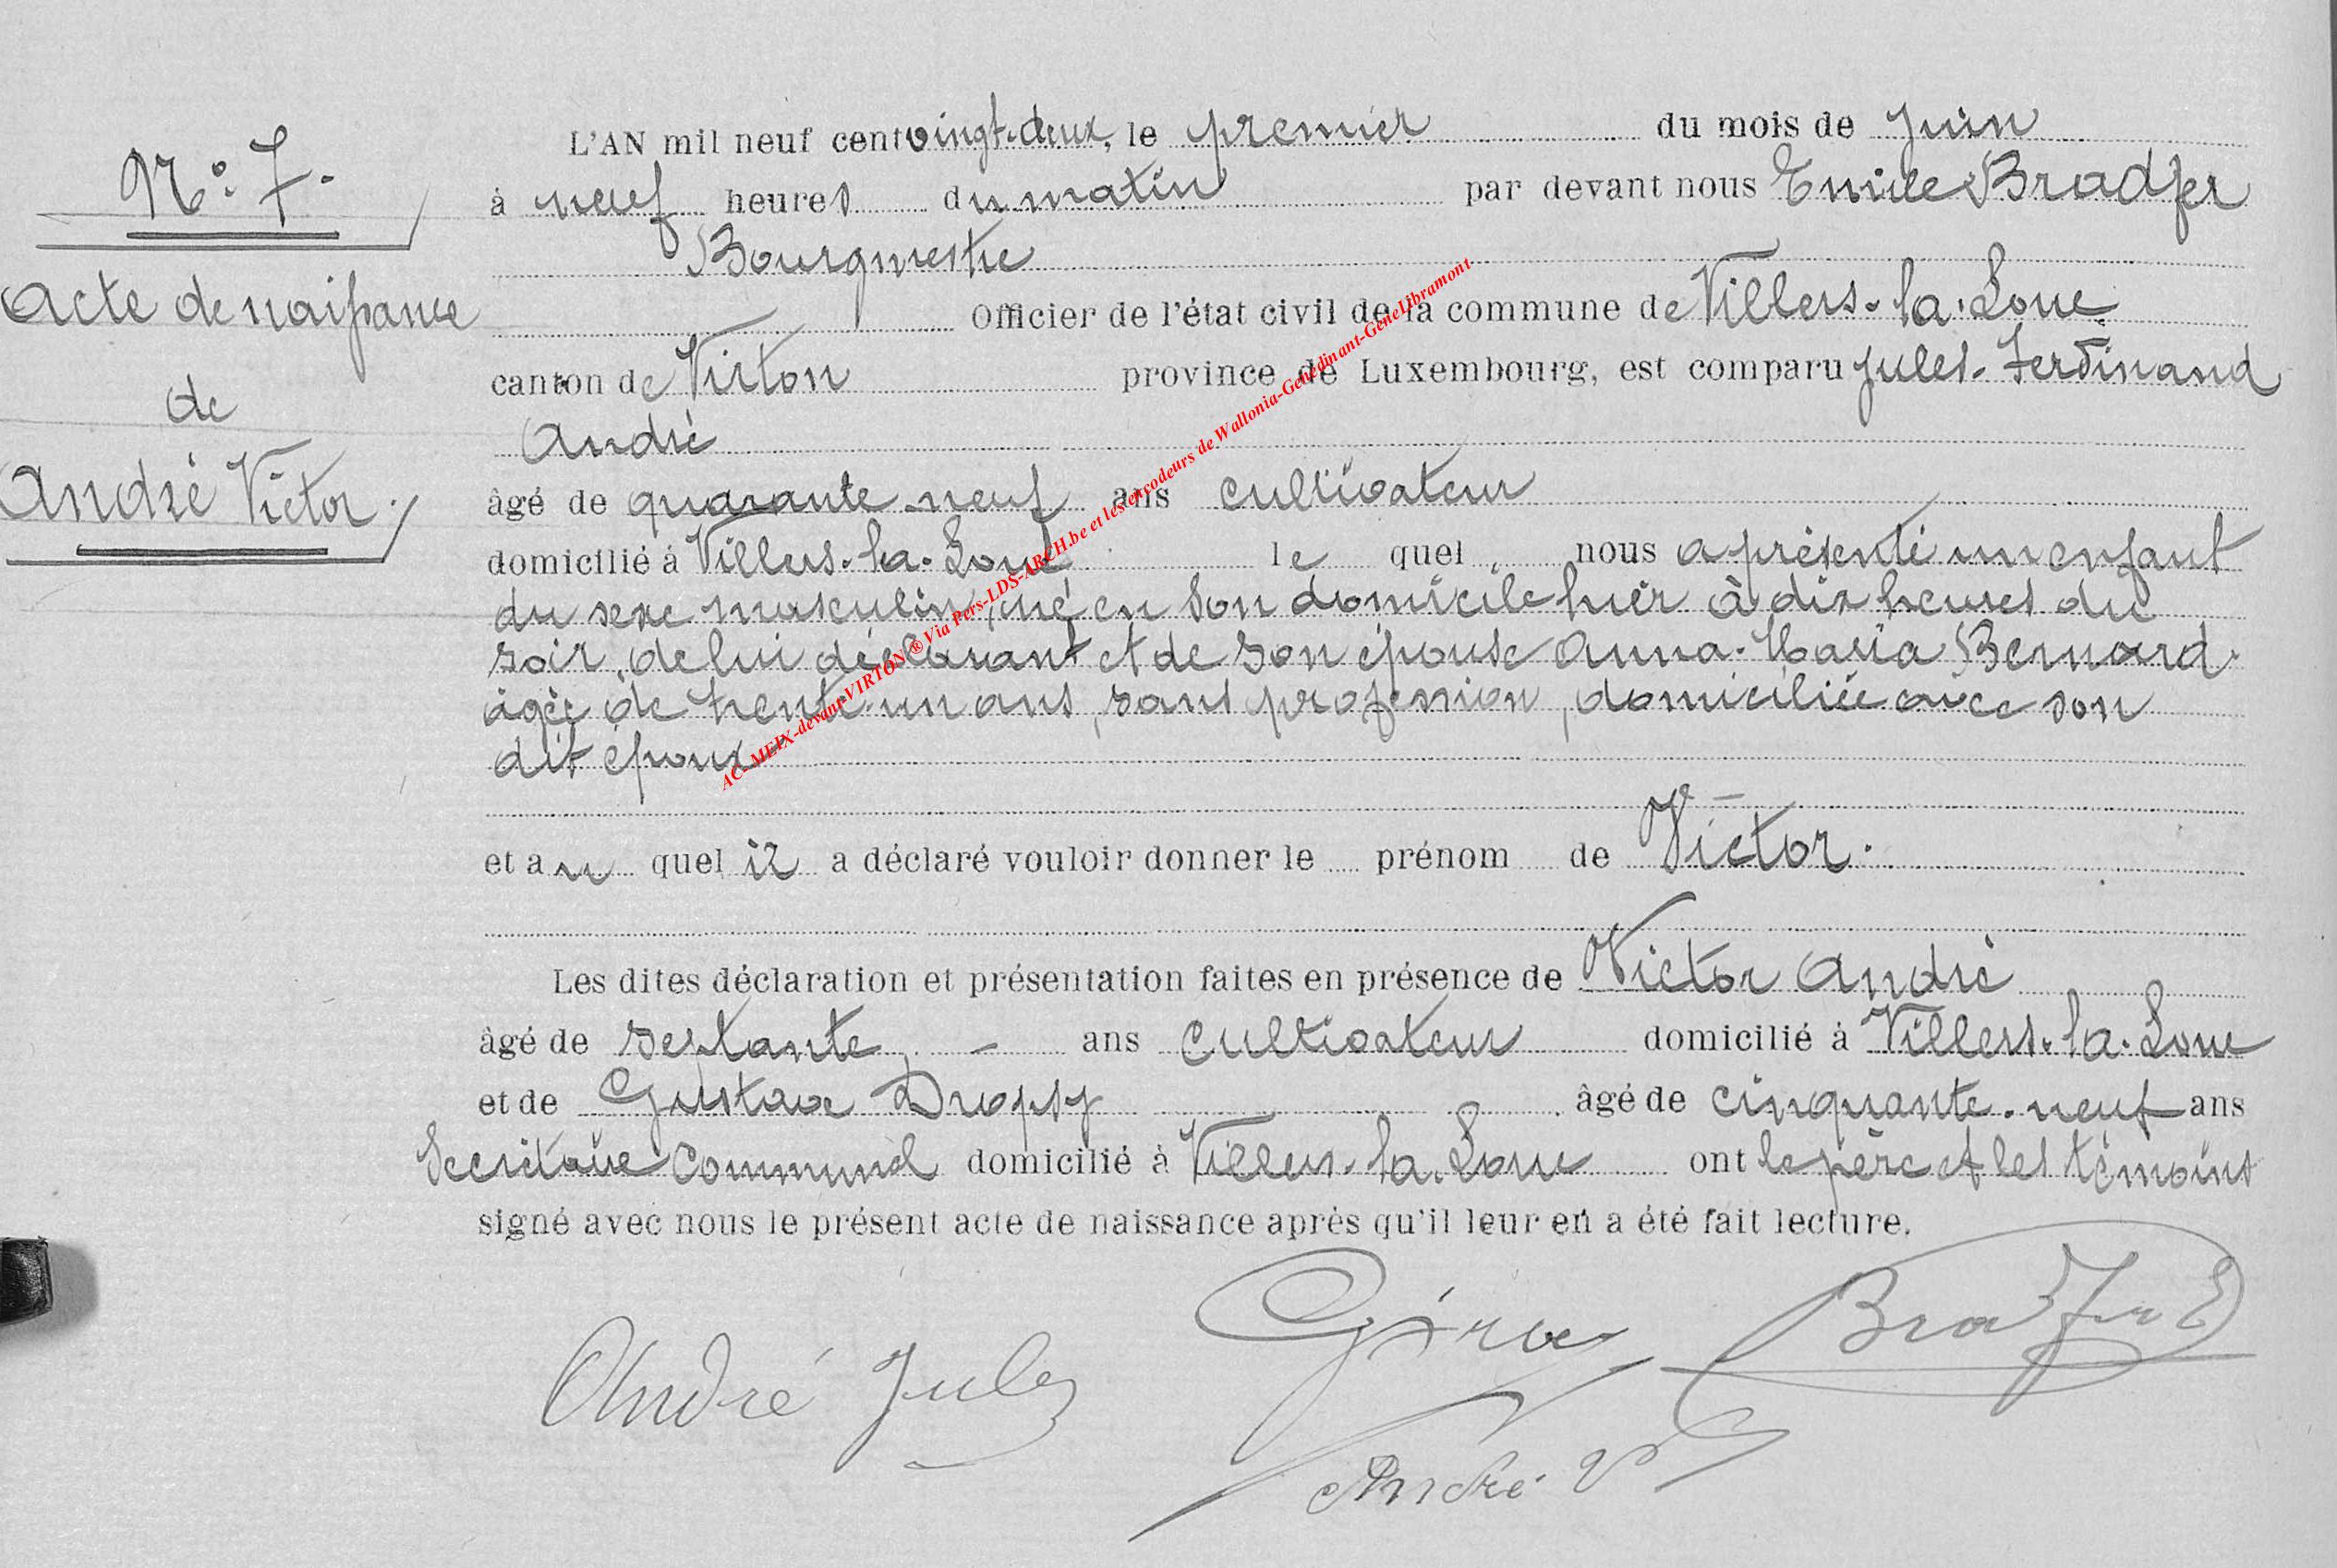 N° 7.
Acte de naissance
de
André Victor.
L'AN mil neuf cent vingt-deux, le premier du mois de Juin
à neuf heures du matin par devant nous Emile Bradfer
Bourgmestre
Officier de l'état civil de la commune de Villers-la-Loue
canton de Virton province de Luxembourg, est comparu Jules-Ferdinand
André
âgé de quarante-neuf ans cultivateur
domicilié à Villers-la-Loue le quel nous a présenté un enfant
du sexe masculin, né en son domicile hier à dix heures du
soir, de lui déclarant et de son épouse Anna-Maria Bernard.
âgée de trente-un ans, sans profession, domiciliée avec son
dit époux
et au quel il a déclaré vouloir donner le prénom de Victor.
Les dites déclaration et présentation faites en présence de Victor André
âgé de septante, - ans cultivateur domicilié à Villers-la-Loue
et de Gustave Dropsy âgé de cinquante-neuf ans
Secrétaire communal domicilié à Villers-la-Loue ont le père et les témoins
signé avec nous le présent acte de naissance après qu'il leur en a été fait lecture.
André Jules
Bradfer E
André V
AC- MEIX-devant-VIRTON ® Via Pers-LDS-ARCH.be et les encodeurs de Wallonia-Genedinant-GeneLibramont